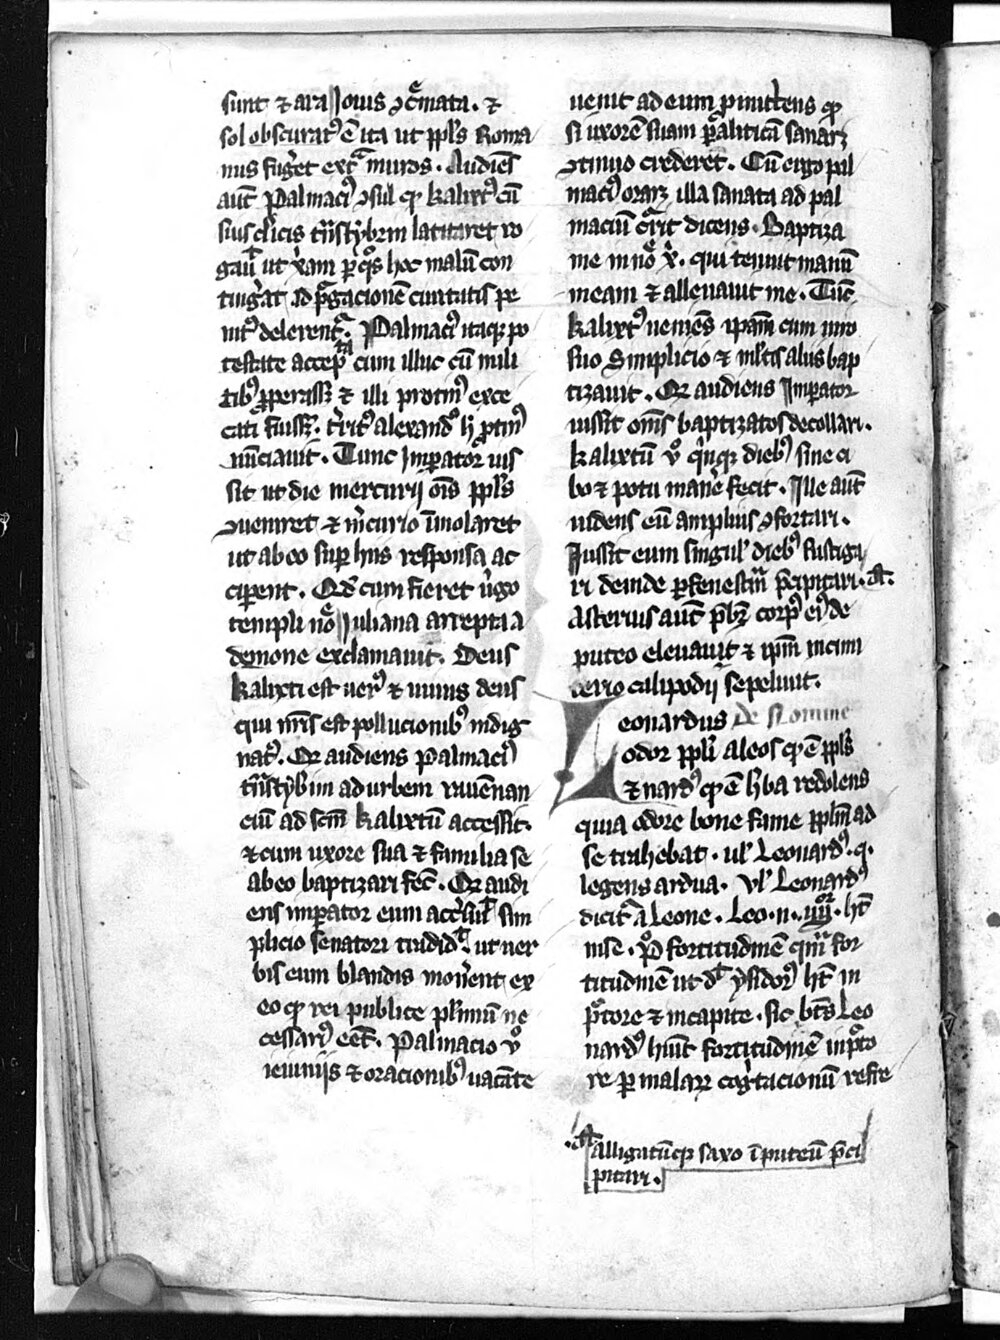 sunt ⁊ ara Iouis ɔc̄mata. ⁊
sol obscurat᷒ ē ita ut ppl̄s Roma
nus fug̾et ext̄ muros. Audiēs
aut̄ Palmaci᷒ ɔsul qꝫ kalixt᷒ cū
suis cl̾icis t̄nstyb̾im latitaret ro
gauit ut xām p̾ q̊s hoc malū con
ting̾at ad p̾gacionē ciuitatis pe
nit᷒ delerent᷑. Palmaci᷒ itaqꝫ po
testate accepta cum illuc cū mili
tib᷒ ꝓperassꝫ ⁊ illi protin᷒ exce
cati fuissꝫ. t̾rit᷒ alexand̾o h̾ protin᷒
nūciauit. Tunc Imꝑator ius
sit ut die mercurij om̄s ppl̄s
ɔueniret ⁊ m̾curio īmolaret
ut ab eo suꝑ hiis responsa ac
ciꝑent. Qd̾ cum fieret uirgo
templi nōīe Iuliana arrepta a
demone exclamauit. Deus
kalixti est uer᷒ ⁊ uiuus deus
qui nr̄is est pollucionib᷒ indig
nat᷒. Qꝫ audiens Palmaci᷒
t̄nstyb̾im ad urbem rauēnan
ciū ad scm̄ kalixtū accessit.
⁊ cum uxore sua ⁊ familia se
ab eo baptizari fec̄. Qꝫ audi
ens imꝑator eum accersiuit Sim
plicio senatori tradid̾t. ut uer
bis eum blandis mon̾ent ex
eo qꝫ rei publice pl̾imū ne
cessari᷒ eēt. Palmacio ṽ
ieiuniis ⁊ oracionib᷒ uacāte
uenit ad eum ꝓmittens qꝫ
si uxorē suam p̄aliticā sanarꝫ
ɔtinuo crederet. Cū ergo pal
maci᷒ orarꝫ illa sanata ad pal
maciū c̾rit dicens. Baptiza
me in nōīe x̄. qui tenuit manū
meam ⁊ alleuauit me. Tūc
kalixt᷒ ueniēs ipam̄ cum uiro
suo Simplicio ⁊ ml̾tis aliis bap
tizauit. Qꝫ audiens Imꝑator
iussit om̄s baptizatos decollari.
kalixtū ṽ q̾nqꝫ dieb᷒ sine ci
bo ⁊ potu man̾e fecit. Ille aut̄
uidens eū amplius ɔfortari.
Iussit eum singul̾ dieb᷒ fustiga
ri deinde ꝑ fenestrā p̄cipitari.
Asterius aut̄ p̄bꝫ corp᷒ ei᷒ de
puteo eleuauit ⁊ ipm̄ in cimi
terio calipodij sepeliuit.
Leonardus De Nomine
odor ppl̾i a leos qꝫ ē ppl̄s
⁊ nard᷒ qꝫ ē h̾ba redolens
quia odore bone fame pplm̄ ad
se trahebat. ul̾ Leonard᷒ .q.
legens ardua. Vl̾ Leonard᷒
dicit᷑ a Leone. Leo .n. iiijor. ht̄
in se. P̊ fortitudinē quarū for
titudinē ut d̾t ysidor᷒ ht̄ in
p̊tore ⁊ in capite. sic bt̄s Leo
nard᷒ huit̄ fortitudinē in pc̄to
re ꝑ malarꝫ cog̾tacionū refre
alligatūqꝫ saxo ī puteū p̄ci
pitari.